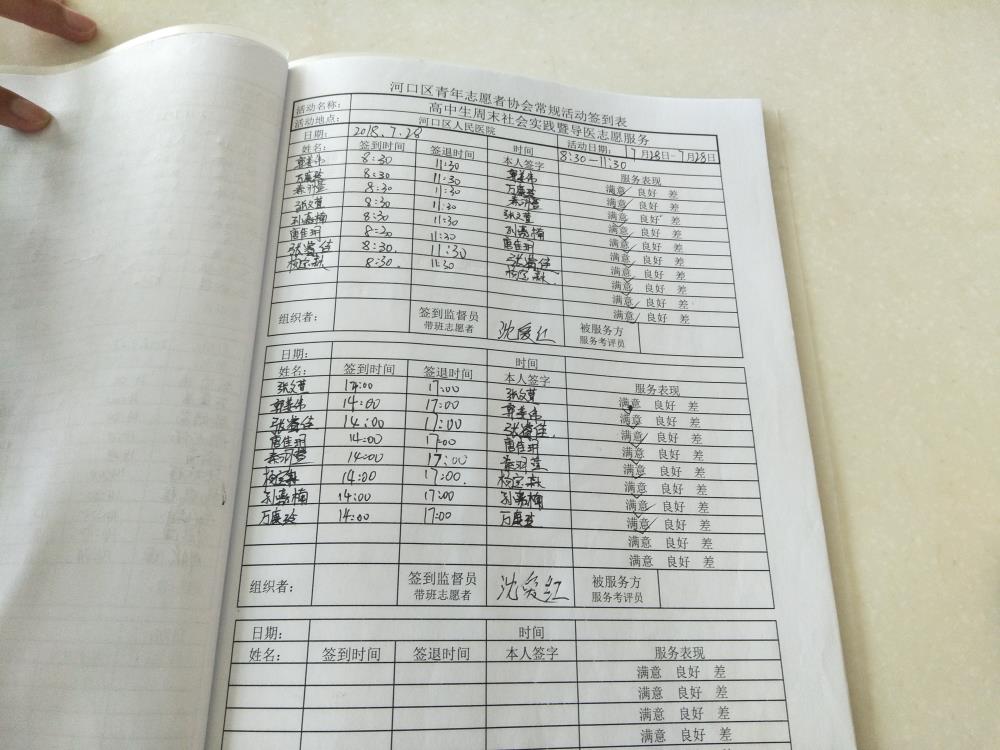 河口区青年志愿者协会常规活动签到表
活动名称： 高中生周末社会实践暨导医志愿服务
活动地点： 河口区人民医院 活动日期： 7月28日-7月28日
日期： 2018.7.28 时间 8:30-11:30
姓名： 签到时间 签退时间 本人签字 服务表现
8:30 11:30 满意 良好 差
8:30 11:30 满意 良好 差
8:30 11:30 满意 良好 差
张文萱 8:30 11:30 张文萱 满意 良好 差
孙嘉楠 8:30 11:30 孙嘉楠 满意 良好 差
唐佳玥 8:30 11:30 唐佳玥 满意 良好 差
8:30. 11:30 满意 良好 差
8:30. 11:30 满意 良好 差
满意 良好 差
满意 良好 差
组织者： 签到监督员 带班志愿者 沈爱红 被服务方 服务考评员
日期： 时间
姓名： 签到时间 签退时间 本人签字 服务表现
张文萱 14:00 17:00 张文萱 满意 良好 差
14:00 17:00 满意 良好 差
14:00 17:00 满意 良好 差
唐佳玥 14:00 17:00 唐佳玥 满意 良好 差
14:00 17:00 满意 良好 差
14:00 17:00. 满意 良好 差
孙嘉楠 14:00 17:00 孙嘉楠 满意 良好 差
14:00 17:00 满意 良好 差
满意 良好 差
满意 良好 差
组织者： 签到监督员 带班志愿者 沈爱红 被服务方 服务考评员
日期： 时间
姓名： 签到时间 签退时间 本人签字 服务表现
满意 良好 差
满意 良好 差
满意 良好 差
满意 良好 差